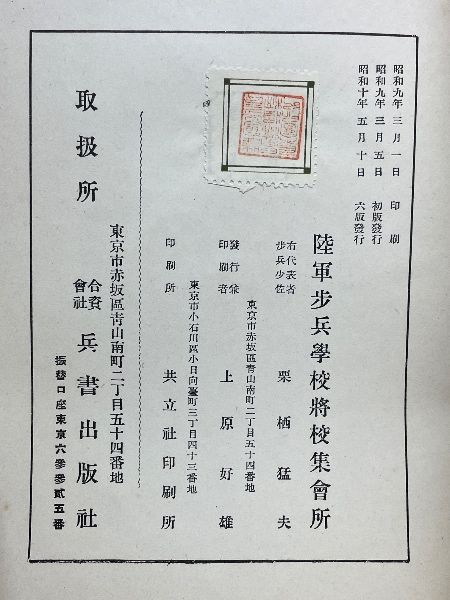 昭和九年三月一日 印刷
昭和九年三月五日 初版發行
昭和十年五月十日 六版發行
陸軍步兵學校將校集會所
右代表者
步兵少佐 栗栖猛夫
東京市赤坂區靑山南町二丁目五十四番地
發行兼
印刷者 上原好雄
東京市小石川區小日向臺町三丁目四十三番地
印刷所 共立社印刷所
東京市赤坂區靑山南町二丁目五十四番地
取扱所 合資會社 兵書出版社
振替口座東京六參參貳五番